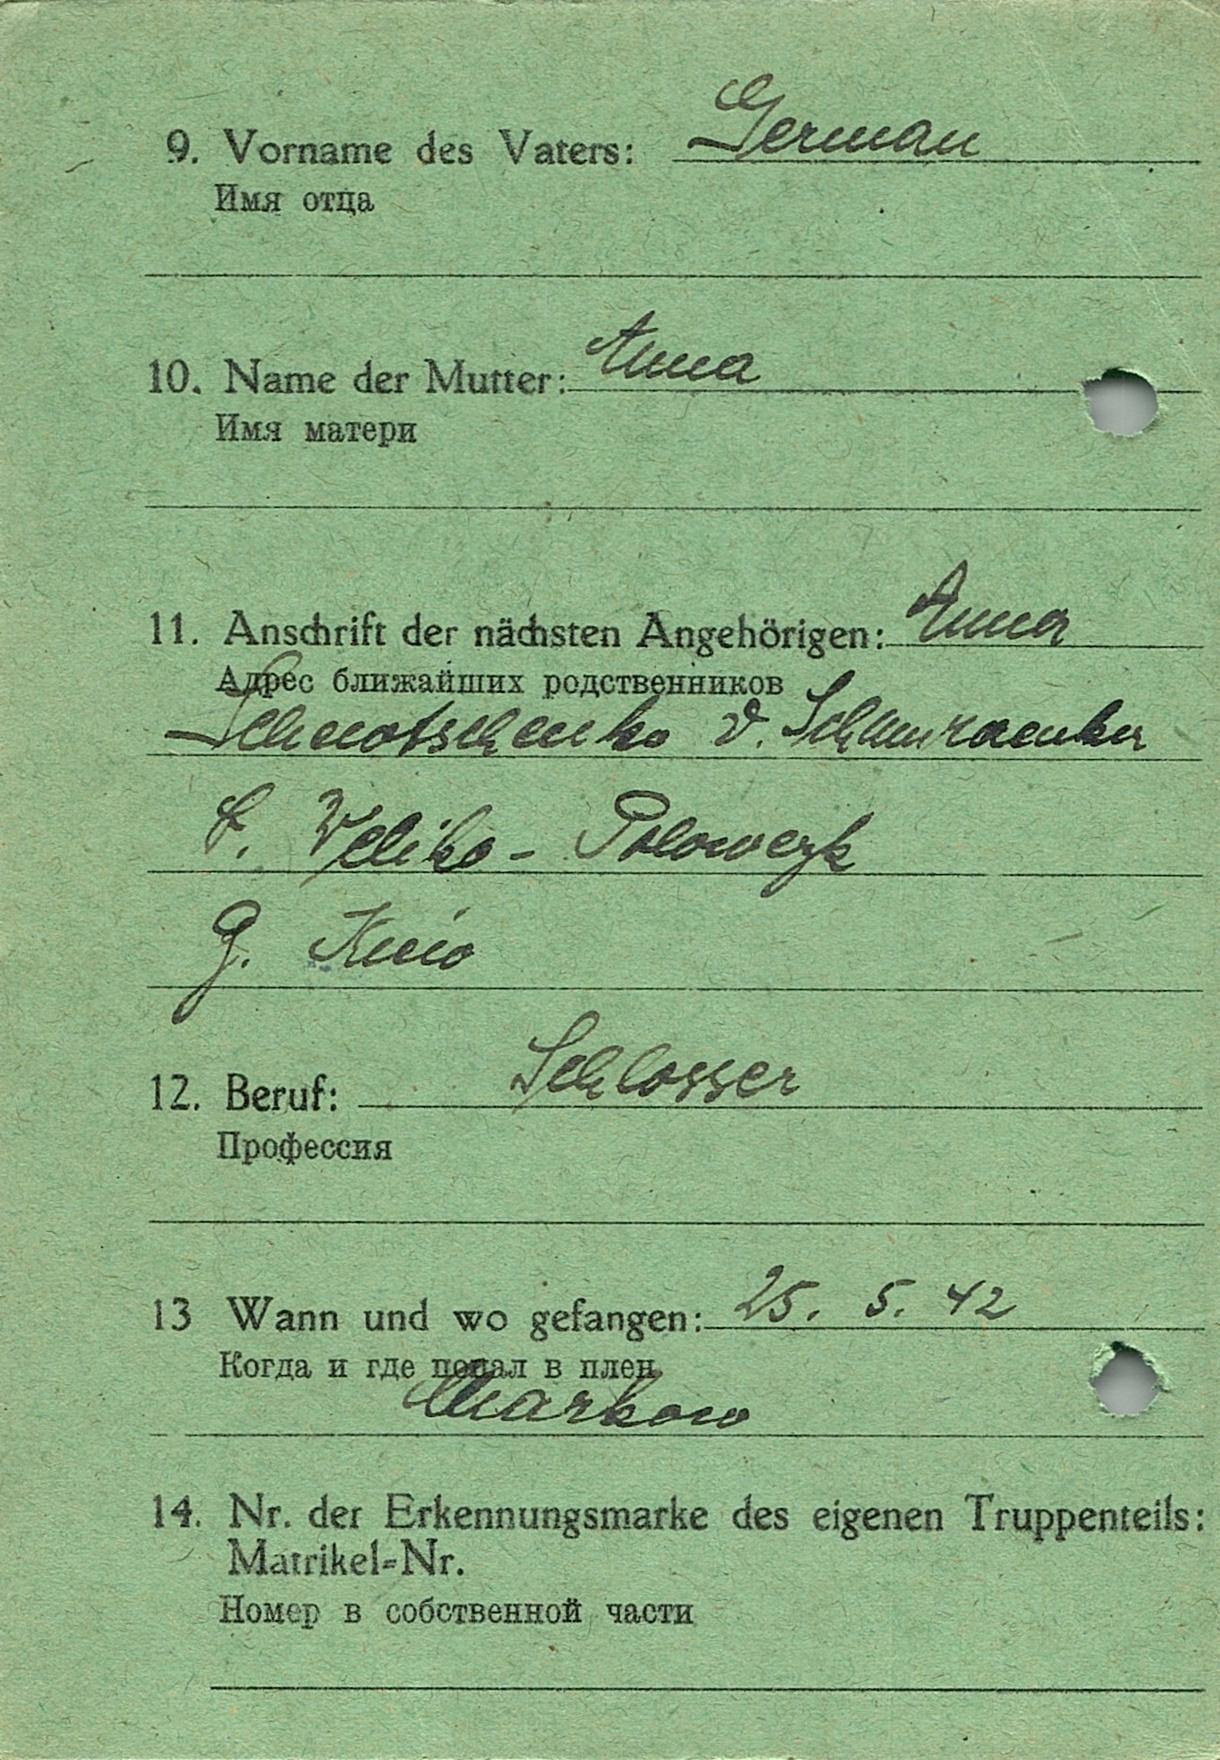 9. Vorname des Vaters: German
Имя отца
10. Name der Mutter: Anna
Имя матери
11. Anschrift der nächsten Angehörigen: Anna
Адрес ближайших родственников
d.
S. Weliko-
G. Keio
12. Beruf: Schlosser
Профессия
13 Wann und wo gefangen: 25. 5. 42
Когда и где попал в плен
Charkow
14. Nr. der Erkennungsmarke des eigenen Truppenteils:
Matrikel=Nr.
Номер в собственной части